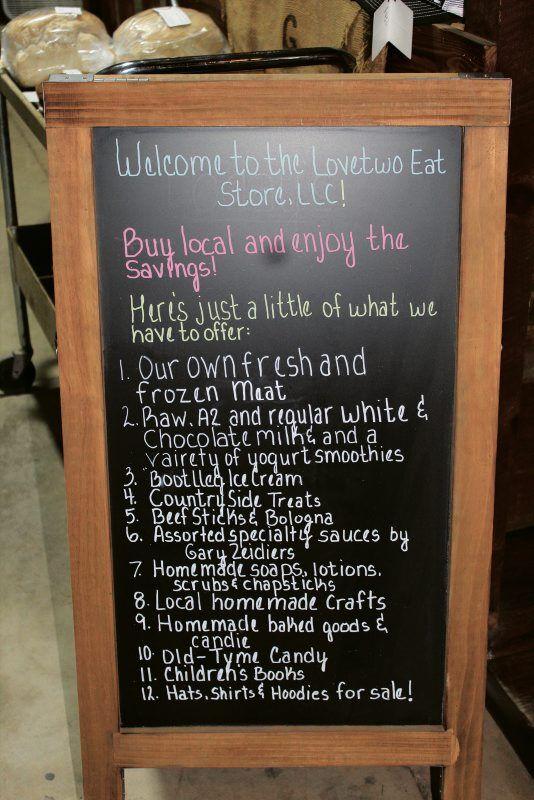 G
Welcome to the Lovetwo Eat
Store, LLC!
Buy local and enjoy the
savings!
Here's just a little of what we
have to offer:
1. Our own fresh and
frozen Meat
2. Raw, A2 and regular white &
Chocolate milk & and a
vairety of yogurt smoothies
3. Bootlleg Ice Cream
4. Country Side Treats
5. Beef Sticks & Bologna
6. Assorted specialty sauces by
Gary Zeidiers
7. Homemade soaps, lotions,
scrubs & chapsticks
8. Local homemade Crafts
9. Homemade baked goods &
candie
10. Old-Tyme Candy
11. Children's Books
12. Hats, Shirts & Hoodies for sale!